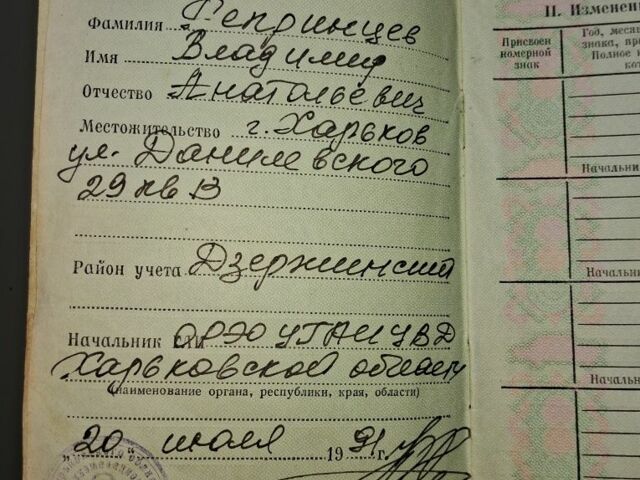 Фамилия Репринцев
Имя Владимир
Отчество Анатольевич
Местожительство г. Харьков
ул. Данилевского
29 кв 13
Район учета Дзержинский
Начальник ОРЭО УГАИ УВД
Харьковской области
(наименование органа, республики, края, области)
„20" июля 1991 г.
II. Изменен
Присвоен
номерной
знак
Год, меся
знака, пр
Полное н
ко
Начальни
Начальн
Начальн